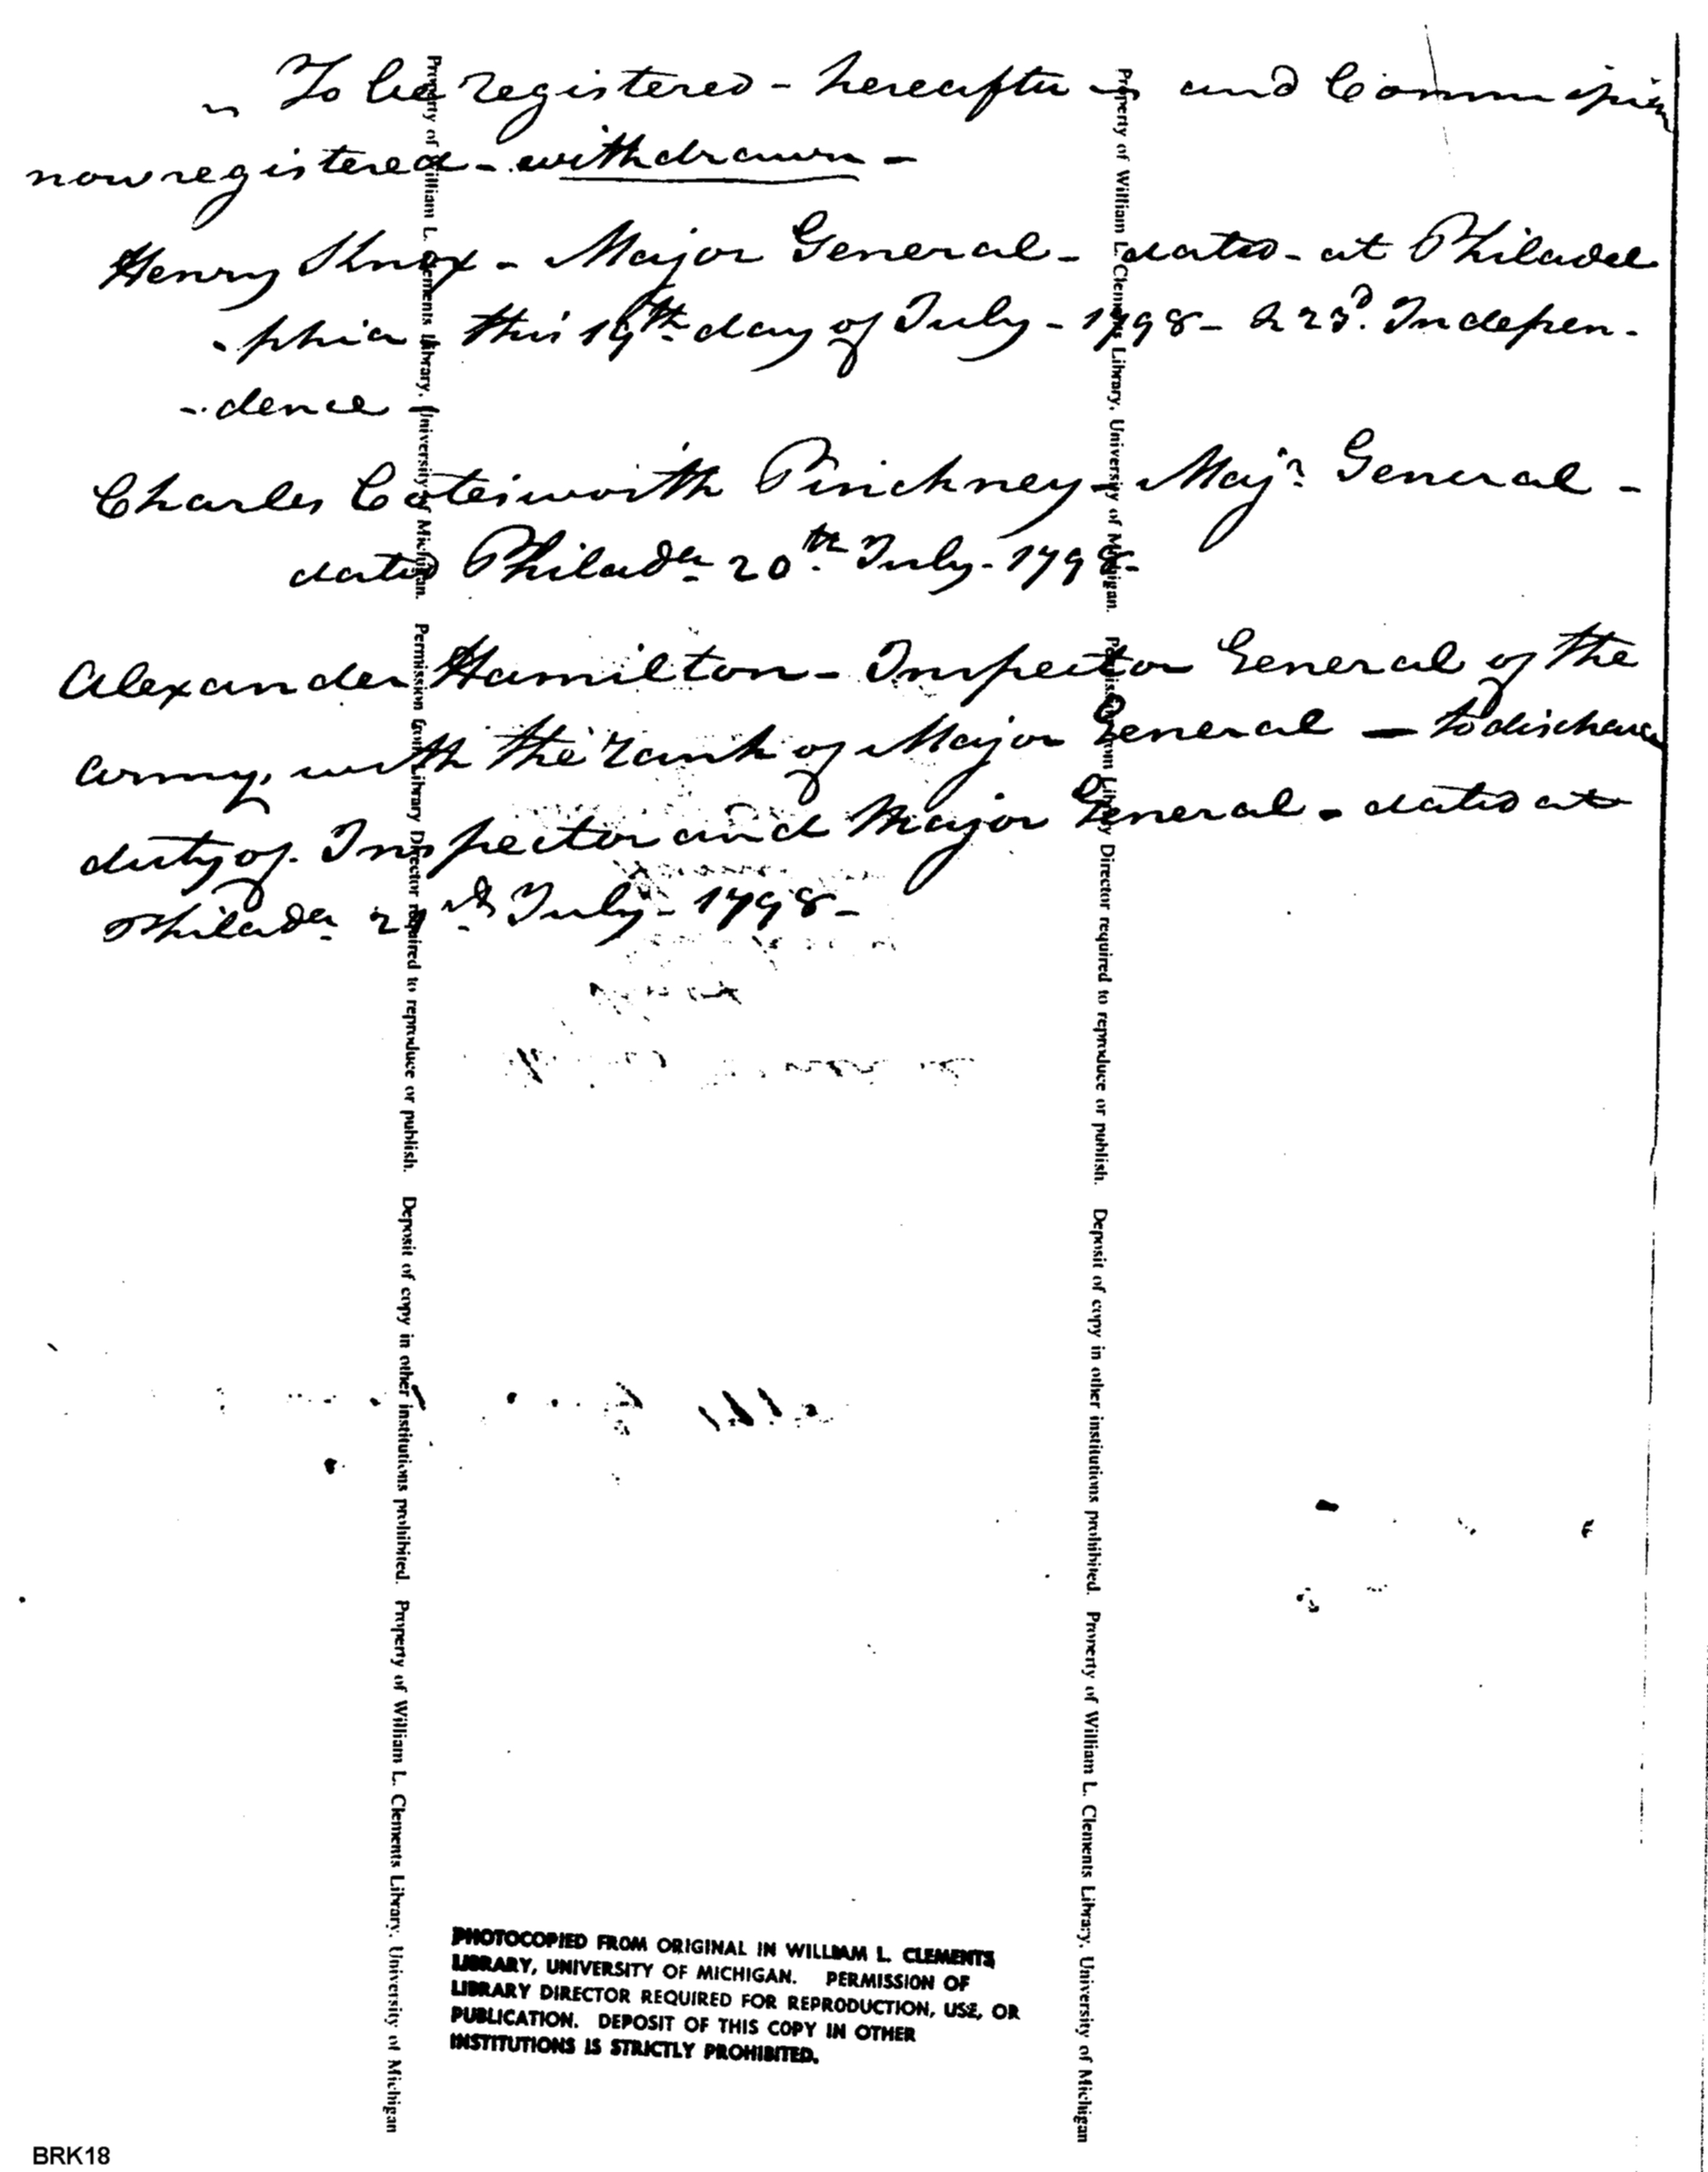 " To be registered - hereafter - and Commission
now registered - withdrawn -
Henry Knox - Major General - dated - at Philadel
- phia this 19th day of July - 1798 - & 23d. Indepen-
- dence
Charles Cotesworth Pinckney - Majr. General -
dated Philada. 20th. July - 1798 -
Alexander Hamilton - Inspector General of the
Army, with the rank of Major General - to discharge
duty of Inspector and Major General - dated at
Philada. July - 1798 -
Property of William L. Clements Library, University of Michigan. Permission from Library Director required to reproduce or publish. Deposit of copy in other institutions prohibited. Property of William L. Clements Library, University of Michigan
Property of William L. Clements Library, University of Michigan. Permission from Library Director required to reproduce or publish. Deposit of copy in other institutions prohibited. Property of William L. Clements Library, University of Michigan
PHOTOCOPIED FROM ORIGINAL IN WILLIAM L. CLEMENTS
LIBRARY, UNIVERSITY OF MICHIGAN. PERMISSION OF
LIBRARY DIRECTOR REQUIRED FOR REPRODUCTION, USE, OR
PUBLICATION. DEPOSIT OF THIS COPY IN OTHER
INSTITUTIONS IS STRICTLY PROHIBITED.
BRK18